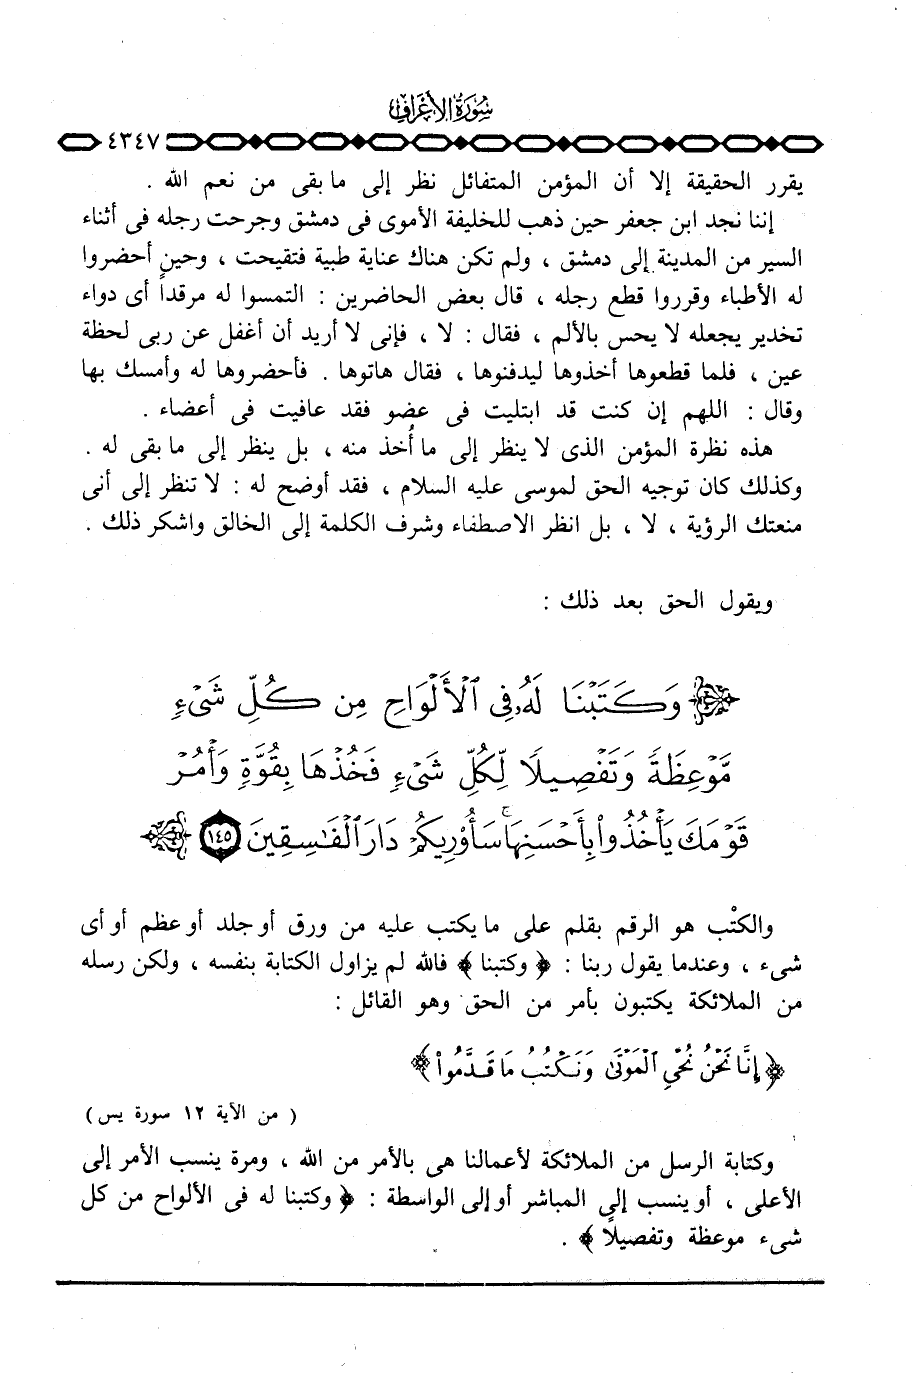 سورة الأعراف
٤٣٤٧
يقرر الحقيقة إلا أن المؤمن المتفائل نظر إلى ما بقى من نعم الله .
إننا نجد ابن جعفر حين ذهب للخليفة الأموى فى دمشق وجرحت رجله فى أثناء
السير من المدينة إلى دمشق ، ولم تكن هناك عناية طبية فتقيحت ، وحين أحضروا
له الأطباء وقرروا قطع رجله ، قال بعض الحاضرين : التمسوا له مرقداً أى دواء
تخدير يجعله لا يحس بالألم ، فقال : لا ، فإنى لا أريد أن أغفل عن ربى لحظة
عين ، فلما قطعوها أخذوها ليدفنوها ، فقال هاتوها . فأحضروها له وأمسك بها
وقال : اللهم إن كنت قد ابتليت فى عضو فقد عافيت فى أعضاء .
هذه نظرة المؤمن الذى لا ينظر إلى ما أُخذ منه ، بل ينظر إلى ما بقى له .
وكذلك كان توجيه الحق لموسى عليه السلام ، فقد أوضح له : لا تنظر إلى أنى
منعتك الرؤية ، لا ، بل انظر الاصطفاء وشرف الكلمة إلى الخالق واشكر ذلك .
ويقول الحق بعد ذلك :
وَكَتَبْنَا لَهُۥ فِى ٱلْأَلْوَاحِ مِن كُلِّ شَىْءٍ
مَّوْعِظَةً وَتَفْصِيلًا لِّكُلِّ شَىْءٍ فَخُذْهَا بِقُوَّةٍ وَأْمُرْ
قَوْمَكَ يَأْخُذُوا۟ بِأَحْسَنِهَا ۚ سَأُو۟رِيكُمْ دَارَ ٱلْفَـٰسِقِينَ ١٤٥
والكتْب هو الرقم بقلم على ما يكتب عليه من ورق أو جلد أو عظم أو أى
شىء ، وعندما يقول ربنا : ﴿ وكتبنا ﴾ فالله لم يزاول الكتابة بنفسه ، ولكن رسله
من الملائكة يكتبون بأمر من الحق وهو القائل :
﴿ إِنَّا نَحْنُ نُحْىِ ٱلْمَوْتَىٰ وَنَكْتُبُ مَا قَدَّمُوا۟ ﴾
( من الآية ١٢ سورة يس )
وكتابة الرسل من الملائكة لأعمالنا هى بالأمر من الله ، ومرة ينسب الأمر إلى
الأعلى ، أو ينسب إلى المباشر أو إلى الواسطة : ﴿ وكتبنا له فى الألواح من كل
شىء موعظة وتفصيلاً ﴾ .